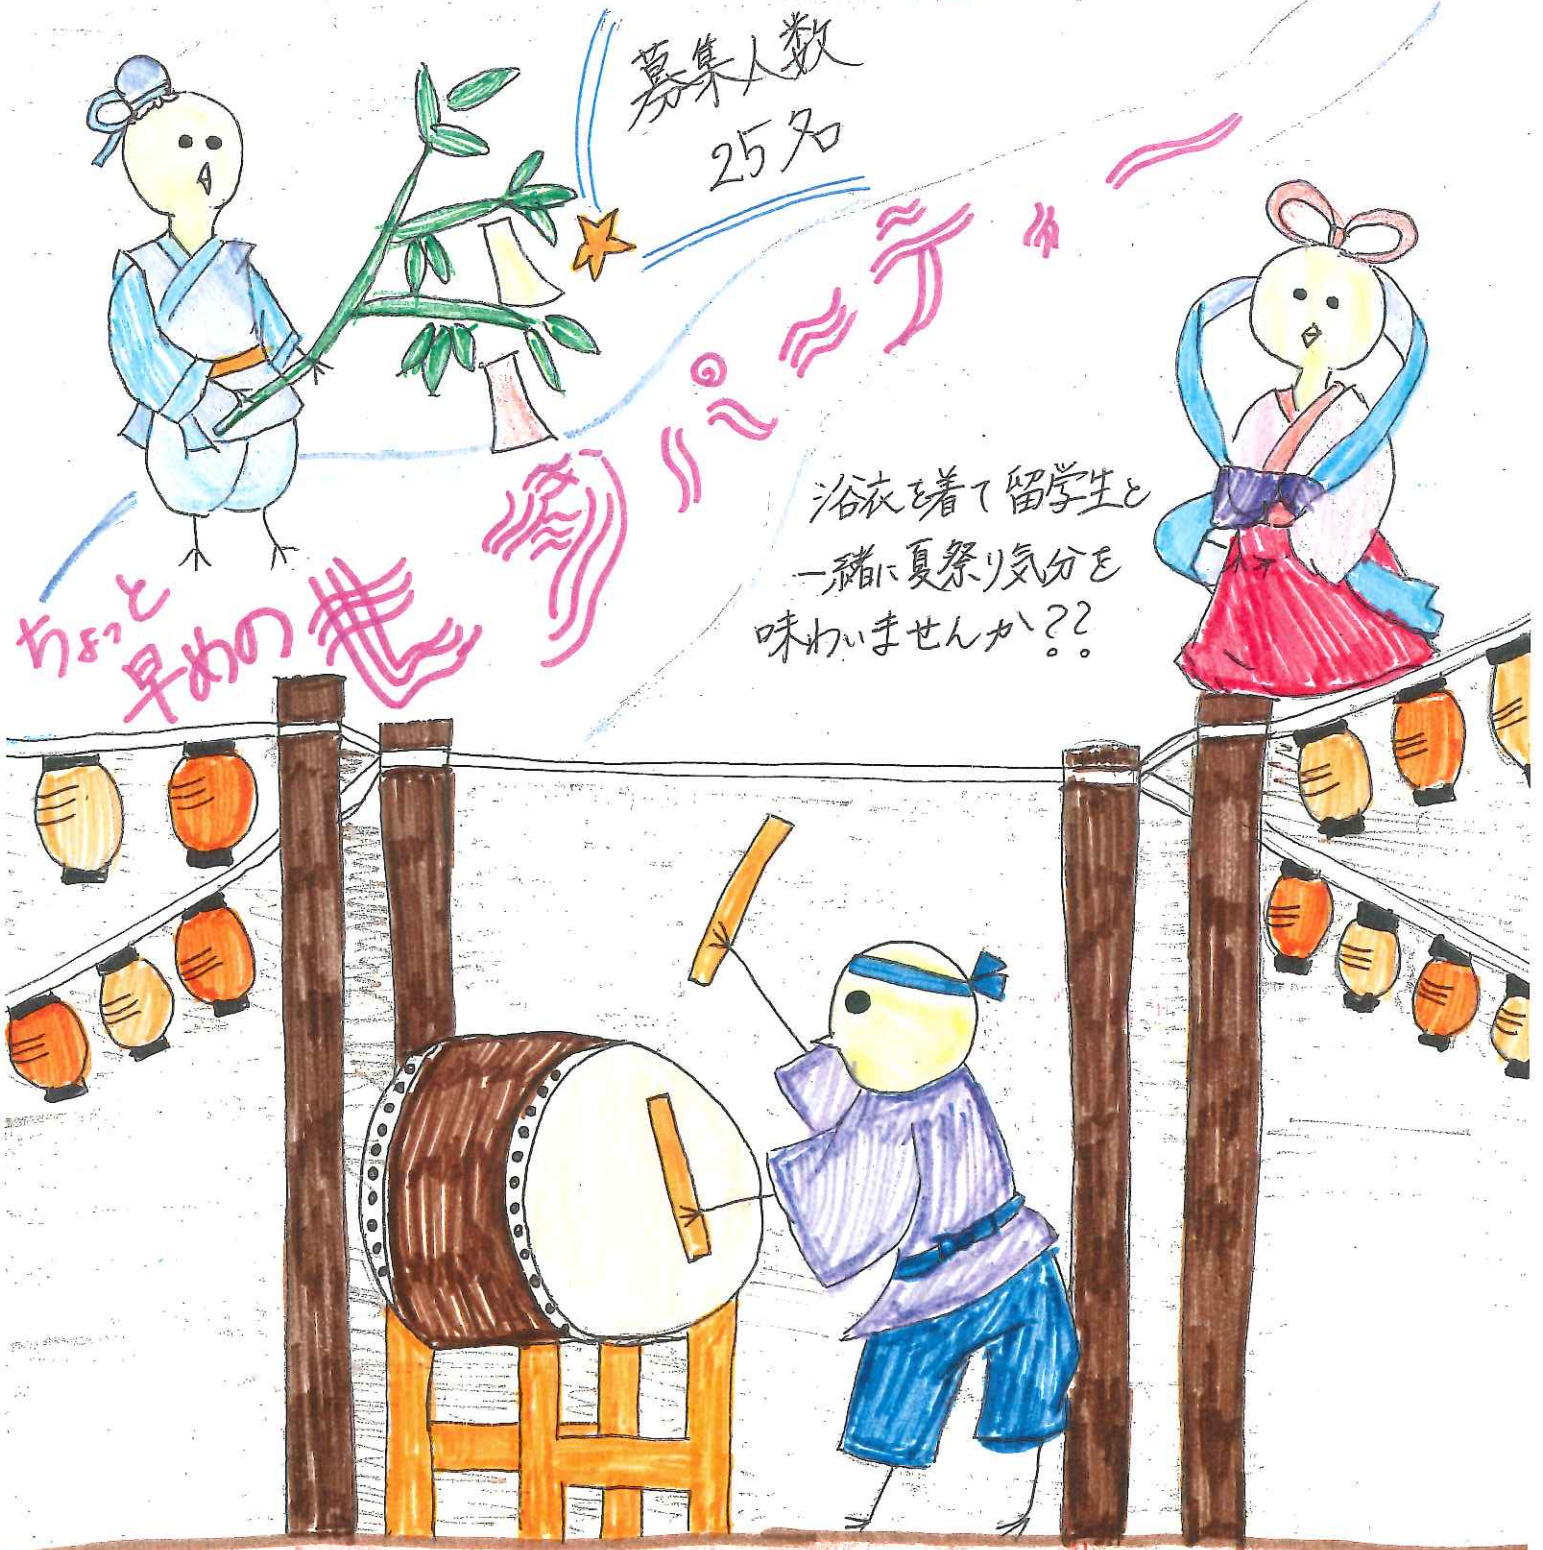 募集人数
25名
ちょっと
早めの七夕パーティー
浴衣を着て留学生と
一緒に夏祭り気分を
味わいませんか??